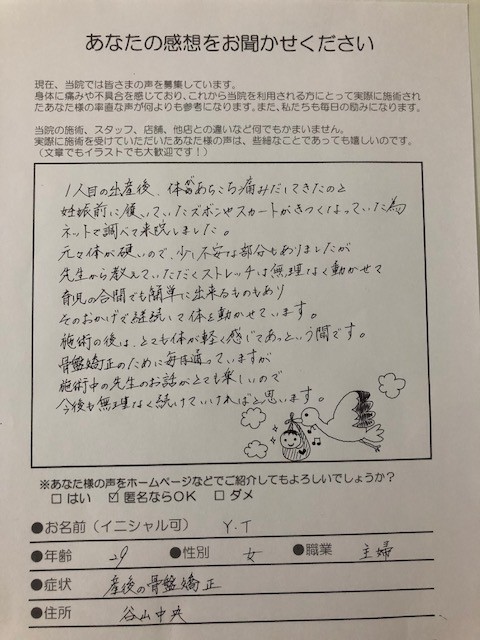 あなたの感想をお聞かせください
現在、当院では皆さまの声を募集しています。
身体に痛みや不具合を感じており、これから当院を利用される方にとって実際に施術され
たあなた様の率直な声が何よりも参考になります。また、私たちも毎日の励みになります。
当院の施術、スタッフ、店舗、他店との違いなど何でもかまいません。
実際に施術を受けていただいたあなた様の声は、些細なことであっても嬉しいのです。
(文章でもイラストでも大歓迎です!)
1人目の出産後、体のあちこち痛みだしてきたのと
妊娠前に履いていたズボンやスカートがきつくなっていた為
ネットで調べて来院しました。
元々体が硬いので、少し不安な部分もありましたが
先生から教えていただくストレッチは無理なく動かせて
育児の合間でも簡単に出来るものもあり
そのおかげで継続して体を動かせています。
施術の後は、とても体が軽く感じてあっという間です。
骨盤矯正のために毎回通っていますが
施術中の先生のお話がとても楽しいので
今後も無理なく続けていければと思います。
※あなた様の声をホームページなどでご紹介してもよろしいでしょうか?
□ はい ☑ 匿名ならOK □ ダメ
●お名前(イニシャル可) Y.T
●年齢 29 ●性別 女 ●職業 主婦
●症状 産後の骨盤矯正
●住所 谷山中央